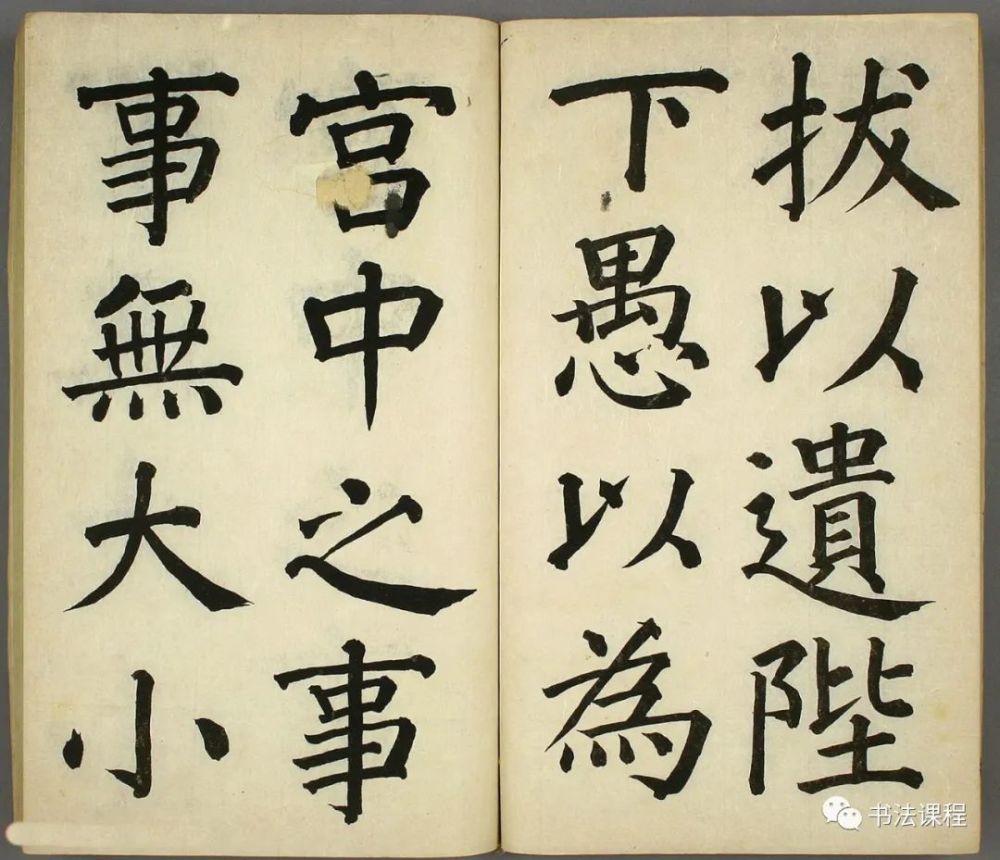 拔以遺陛
下愚以為
宮中之事
事無大小
书法课程